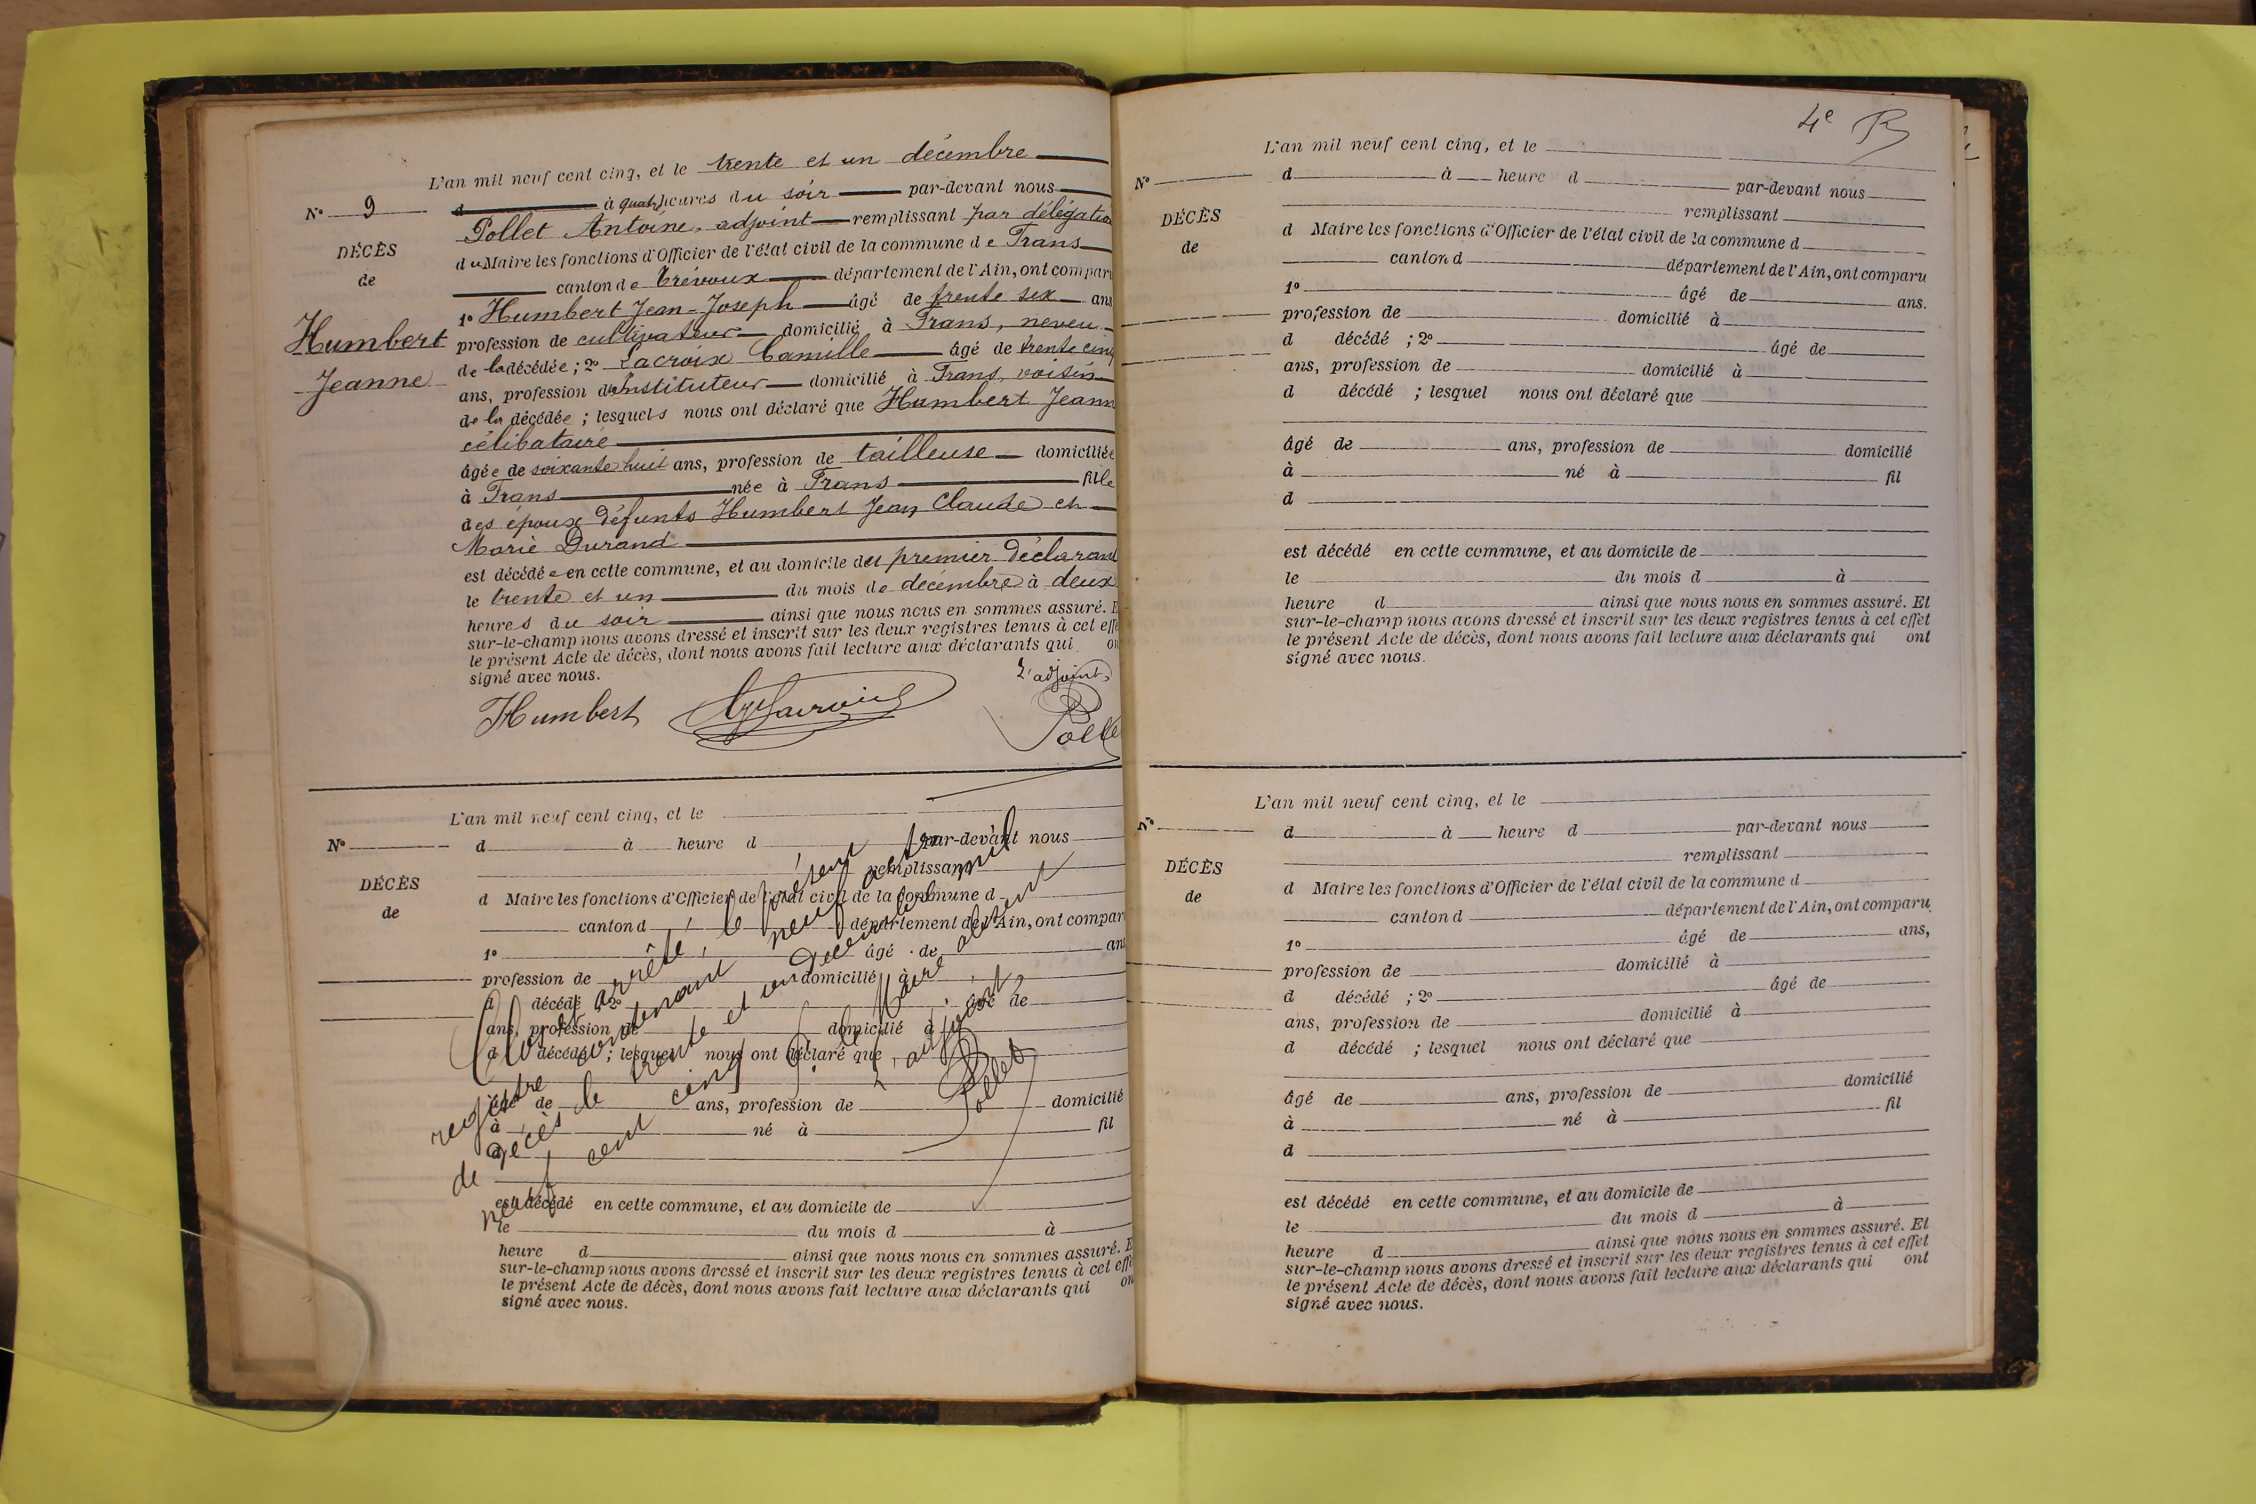 L'an mil neuf cent cinq, et le trente et un décembre
N° 9
d à quatre heures du soir par-devant nous
Pollet Antoine, adjoint remplissant par délégation
DÉCÈS
du Maire les fonctions d'Officier de l'état civil de la commune de Trans
de
canton de Trévoux département de l'Ain, ont comparu
1° Humbert Jean-Joseph âgé de trente six ans
Humbert
Jeanne
profession de cultivateur domicilié à Trans, neveu
de la décédée ; 2° Lacroix Camille âgé de trente cinq
ans, profession d'instituteur domicilié à Trans, voisin
de la décédée ; lesquels nous ont déclaré que Humbert Jeanne
célibataire
âgée de soixante huit ans, profession de tailleuse domiciliée
à Trans née à Trans fille
des époux défunts Humbert Jean Claude et
Marie Durand
est décédée en cette commune, et au domicile du premier déclarant
le trente et un du mois de décembre à deux
heures du soir ainsi que nous nous en sommes assuré. E
sur-le-champ nous avons dressé et inscrit sur les deux registres tenus à cet effe
le présent Acte de décès, dont nous avons fait lecture aux déclarants qui on
signé avec nous.
L'adjoint
Humbert
Pollet
L'an mil neuf cent cinq, et le
N°
d à heure d par-devant nous
remplissant
DÉCÈS
d Maire les fonctions d'Officier de l'état civil de la commune d
de
canton d département de l'Ain, ont compar
1° âgé de ans
profession de domicilié à
d décédé ; 2° âgé de
ans, profession de domicilié à
d décédé ; lesquel nous ont déclaré que
âgé de ans, profession de domicilié
à né à fil
d
est décédé en cette commune, et au domicile de
le du mois d à
heure d ainsi que nous nous en sommes assuré. E
sur-le-champ nous avons dressé et inscrit sur les deux registres tenus à cet effe
le présent Acte de décès, dont nous avons fait lecture aux déclarants qui on
signé avec nous.
Clos et arrêté, le présent
registre contenant neuf actes
de décès le trente et un décembre mil
neuf cent cinq P. le Maire absent
L'adjoint,
Pollet
4e
L'an mil neuf cent cinq, et le
N°
d à heure d par-devant nous
remplissant
DÉCÈS
d Maire les fonctions d'Officier de l'état civil de la commune d
de
canton d département de l'Ain, ont comparu
1° âgé de ans.
profession de domicilié à
d décédé ; 2° âgé de
ans, profession de domicilié à
d décédé ; lesquel nous ont déclaré que
âgé de ans, profession de domicilié
à né à fil
d
est décédé en cette commune, et au domicile de
le du mois d à
heure d ainsi que nous nous en sommes assuré. Et
sur-le-champ nous avons dressé et inscrit sur les deux registres tenus à cet effet
le présent Acte de décès, dont nous avons fait lecture aux déclarants qui ont
signé avec nous.
L'an mil neuf cent cinq, et le
N°
d à heure d par-devant nous
remplissant
DÉCÈS
d Maire les fonctions d'Officier de l'état civil de la commune d
de
canton d département de l'Ain, ont comparu
1° âgé de ans,
profession de domicilié à
d décédé ; 2° âgé de
ans, profession de domicilié à
d décédé ; lesquel nous ont déclaré que
âgé de ans, profession de domicilié
à né à fil
d
est décédé en cette commune, et au domicile de
le du mois d à
heure d ainsi que nous nous en sommes assuré. Et
sur-le-champ nous avons dressé et inscrit sur les deux registres tenus à cet effet
le présent Acte de décès, dont nous avons fait lecture aux déclarants qui ont
signé avec nous.